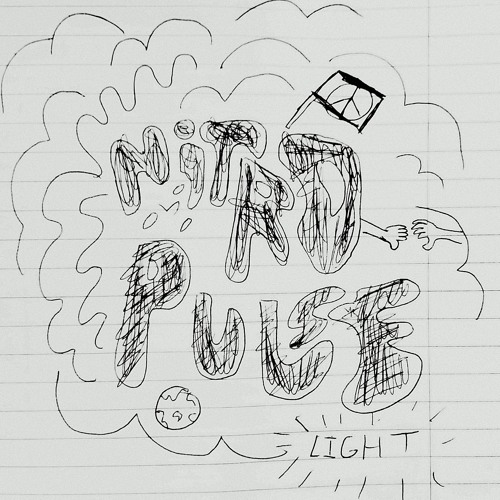 NiTRO
PULSE
LIGHT